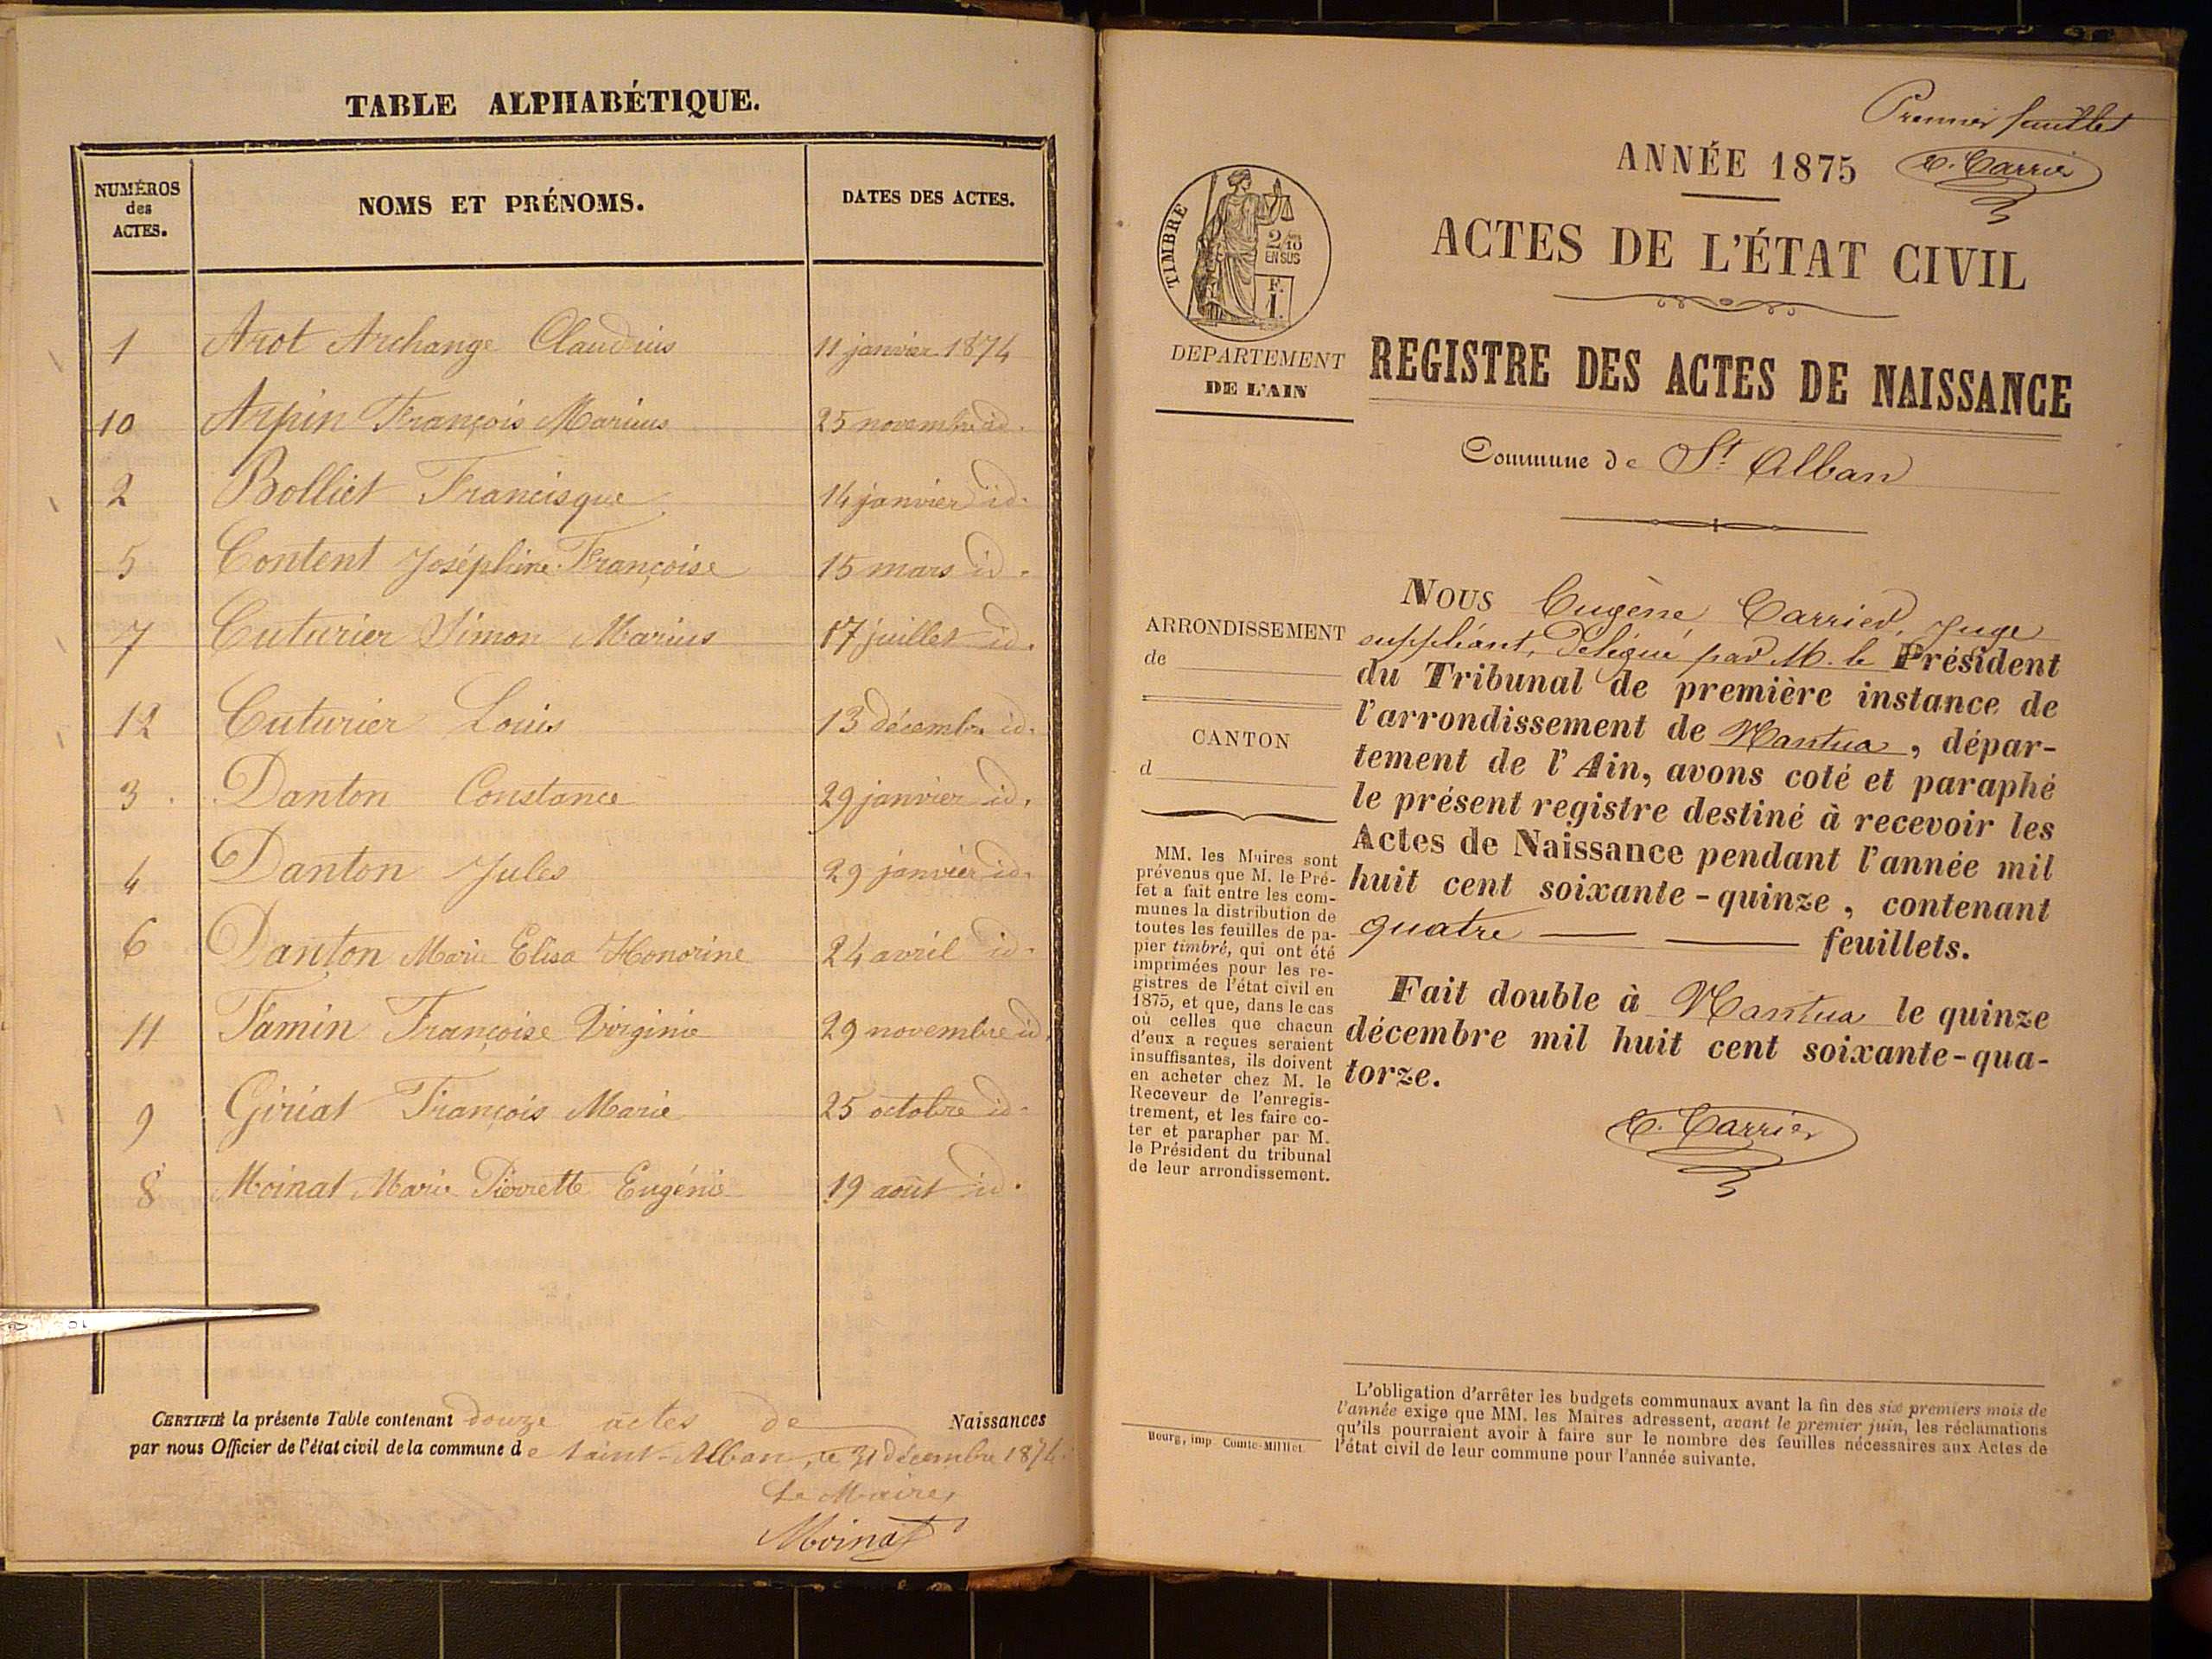 TABLE ALPHABÉTIQUE.
NUMÉROS des ACTES. NOMS ET PRÉNOMS. DATES DES ACTES.
1 Arot Archange Claudius 11 janvier 1874
10 Arpin François Marius 25 novembre id.
2 Bolliet Francisque 14 janvier id.
5 Content Joséphine Françoise 15 mars id.
7 Cuturier Simon Marius 17 juillet id.
12 Cuturier Louis 13 décembre id.
3 Danton Constance 29 janvier id.
4 Danton Jules 29 janvier id.
6 Danton Marie Elisa Honorine 24 avril id.
11 Famin Françoise Virginie 29 novembre id.
9 Giriat François Marie 25 octobre id.
8 Moinat Marie Pierrette Eugénie 19 août id.
CERTIFIÉ la présente Table contenant douze actes de Naissances
par nous Officier de l'état civil de la commune de Saint-Alban, le 31 décembre 1874.
Le Maire,
Moinat
Premier feuillet
ANNÉE 1875 E. Carrier
ACTES DE L'ÉTAT CIVIL
TIMBRE
2/10
EN SUS
F.
1.
DEPARTEMENT
DE L'AIN
REGISTRE DES ACTES DE NAISSANCE
Commune de St. Alban
ARRONDISSEMENT
de
CANTON
d
MM. les Maires sont
prévenus que M. le Pré-
fet a fait entre les com-
munes la distribution de
toutes les feuilles de pa-
pier timbré, qui ont été
imprimées pour les re-
gistres de l'état civil en
1875, et que, dans le cas
où celles que chacun
d'eux a reçues seraient
insuffisantes, ils doivent
en acheter chez M. le
Receveur de l'enregis-
trement, et les faire co-
ter et parapher par M.
le Président du tribunal
de leur arrondissement.
NOUS Eugène Carrier, Juge
suppléant, délégué par M. le Président
du Tribunal de première instance de
l'arrondissement de Nantua, dépar-
tement de l'Ain, avons coté et paraphé
le présent registre destiné à recevoir les
Actes de Naissance pendant l'année mil
huit cent soixante-quinze, contenant
quatre feuillets.
Fait double à Nantua le quinze
décembre mil huit cent soixante-qua-
torze.
E. Carrier
L'obligation d'arrêter les budgets communaux avant la fin des six premiers mois de
l'année exige que MM. les Maires adressent, avant le premier juin, les réclamations
qu'ils pourraient avoir à faire sur le nombre des feuilles nécessaires aux Actes de
l'état civil de leur commune pour l'année suivante.
Bourg, imp. Comte-Milliet.